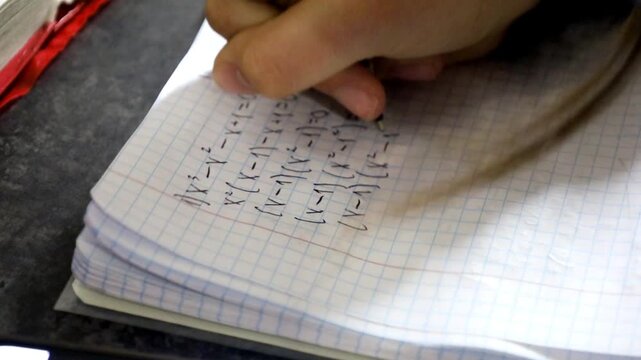 1) x³ - x² - x + 1 = 0
x²(x - 1) - x + 1 = 0
(x - 1)(x² - 1) = 0
(x - 1)(x² - 1²) =
(x - 1)(x² - 1